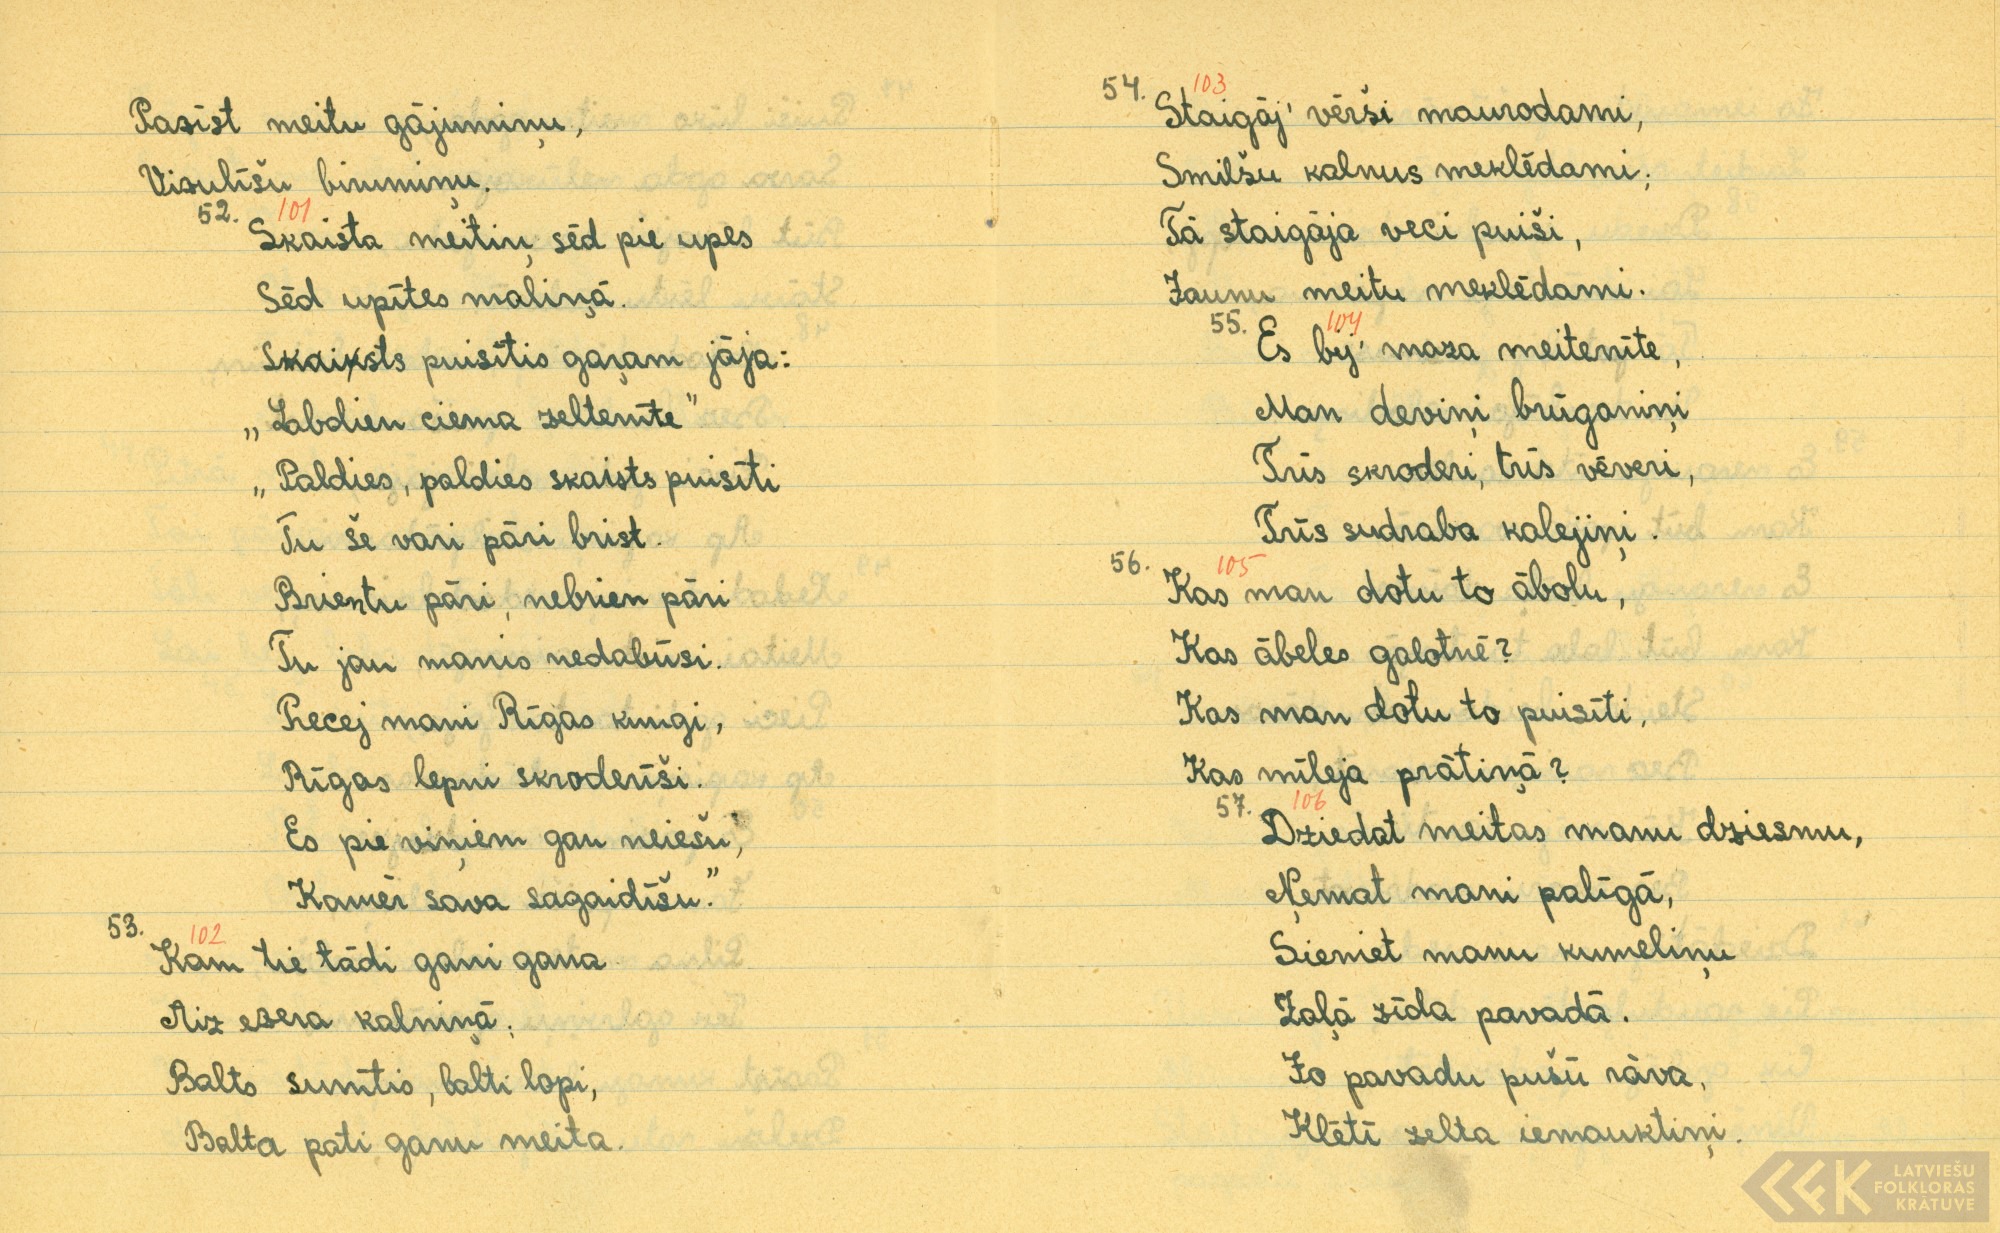 Pazīst meitu gājumiņu,
Vizulīšu birumiņu.
52. 101
Skaista meitiņ sēd pie upes
Sēd upītes maliņā.
Skaists puisītis gaŗam jāja:
„Labdien ciema zeltenīte”
„Paldies, paldies skaists puisīti
Tu še vari pāri brist.
Brientu pāri, nebrien pāri
Tu jau manis nedabūsi.
Precej mani Rīgas kungi,
Rīgas lepni skroderīši.
Es pie viņiem gan neiešu,
Kamēr sava sagaidīšu.”
53. 102
Kam tie tādi gani gana
Aiz ezera kalniņā;
Balts sunītis, balti lopi,
Balta pati ganu meita.
54. 103
Staigāj' vērši maurodami,
Smilšu kalnus meklēdami;
Tā staigāja veci puiši,
Jaunu meitu meklēdami.
55. 104
Es bij' maza meitenīte,
Man deviņi brūganiņi
Trīs skroderi, trīs vēveri,
Trīs sudraba kalejiņi.
56. 105
Kas man dotu to ābolu,
Kas ābeles galotnē?
Kas man dotu to puisīti,
Kas mīleja prātiņā?
57. 106
Dziedat meitas manu dziesmu,
Ņemat mani palīgā,
Sieniet manu kumeliņu
Zaļā zīda pavadā.
Jo pavadu pušū rāva,
Klētī zelta iemauktiņi.
LATVIEŠU
FOLKLORAS
KRĀTUVE